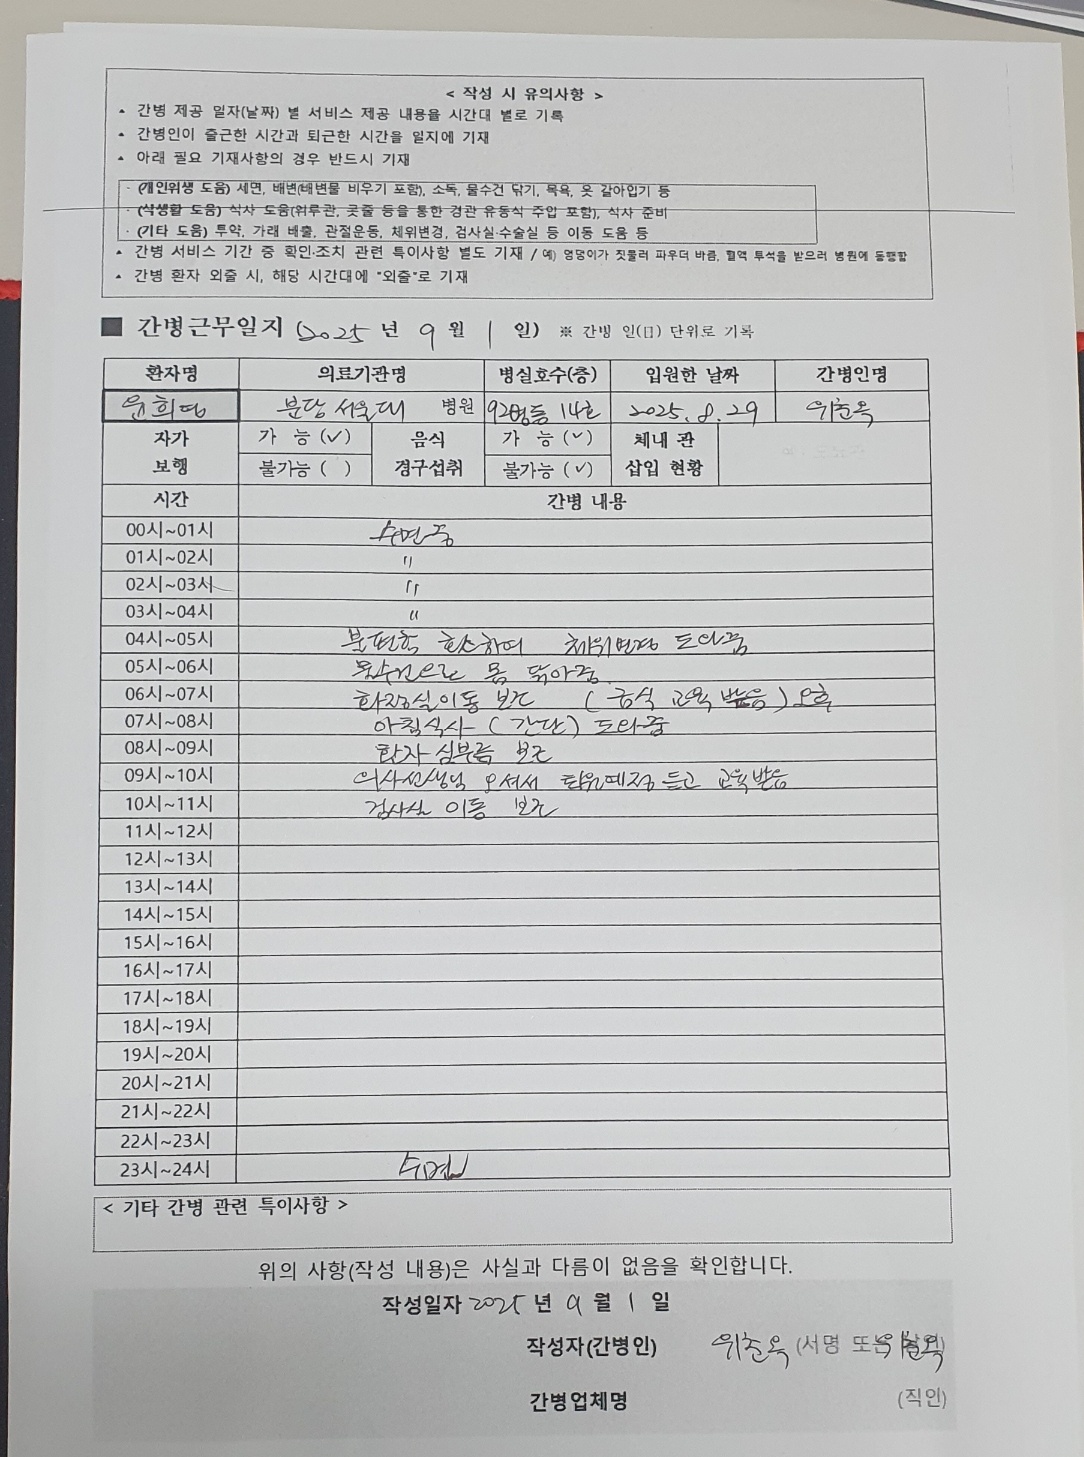 < 작성 시 유의사항 >
▴ 간병 제공 일자(날짜) 별 서비스 제공 내용을 시간대 별로 기록
▴ 간병인이 출근한 시간과 퇴근한 시간을 일지에 기재
▴ 아래 필요 기재사항의 경우 반드시 기재
· (개인위생 도움) 세면, 배변(배변물 비우기 포함), 소독, 물수건 닦기, 목욕, 옷 갈아입기 등
· (식생활 도움) 식사 도움(위루관, 콧줄 등을 통한 경관 유동식 주입 포함), 식사 준비
· (기타 도움) 투약, 가래 배출, 관절운동, 체위변경, 검사실·수술실 등 이동 도움 등
▴ 간병 서비스 기간 중 확인·조치 관련 특이사항 별도 기재 / 예) 엉덩이가 짓물러 파우더 바름, 혈액 투석을 받으러 병원에 동행함
▴ 간병 환자 외출 시, 해당 시간대에 "외출"로 기재
■ 간병근무일지 (2025 년 9 월 1 일) ※ 간병 인(日) 단위로 기록
환자명 의료기관명 병실호수(층) 입원한 날짜 간병인명
분당 서울대 병원 92병동 14호 2025. 8. 29 위춘옥
자가 보행 가 능 (✓) 음식 경구섭취 가 능 (✓) 체내 관 삽입 현황
불가능 ( ) 불가능 (✓)
시간 간병 내용
00시~01시 수면중
01시~02시 〃
02시~03시 〃
03시~04시 〃
04시~05시 불편함 호소하여 체위변경 도와줌
05시~06시 물수건으로 몸 닦아줌
06시~07시 화장실이동 보조 (금식 교육 받음) 오후
07시~08시 아침식사 (간단) 도와줌
08시~09시 환자 심부름 보조
09시~10시 의사선생님 오셔서 퇴원예정 듣고 교육받음
10시~11시 검사실 이동 보조
11시~12시
12시~13시
13시~14시
14시~15시
15시~16시
16시~17시
17시~18시
18시~19시
19시~20시
20시~21시
21시~22시
22시~23시
23시~24시 수면
< 기타 간병 관련 특이사항 >
위의 사항(작성 내용)은 사실과 다름이 없음을 확인합니다.
작성일자 2025 년 9 월 1 일
작성자(간병인) 위춘옥 (서명 또는 위춘옥
간병업체명 (직인)